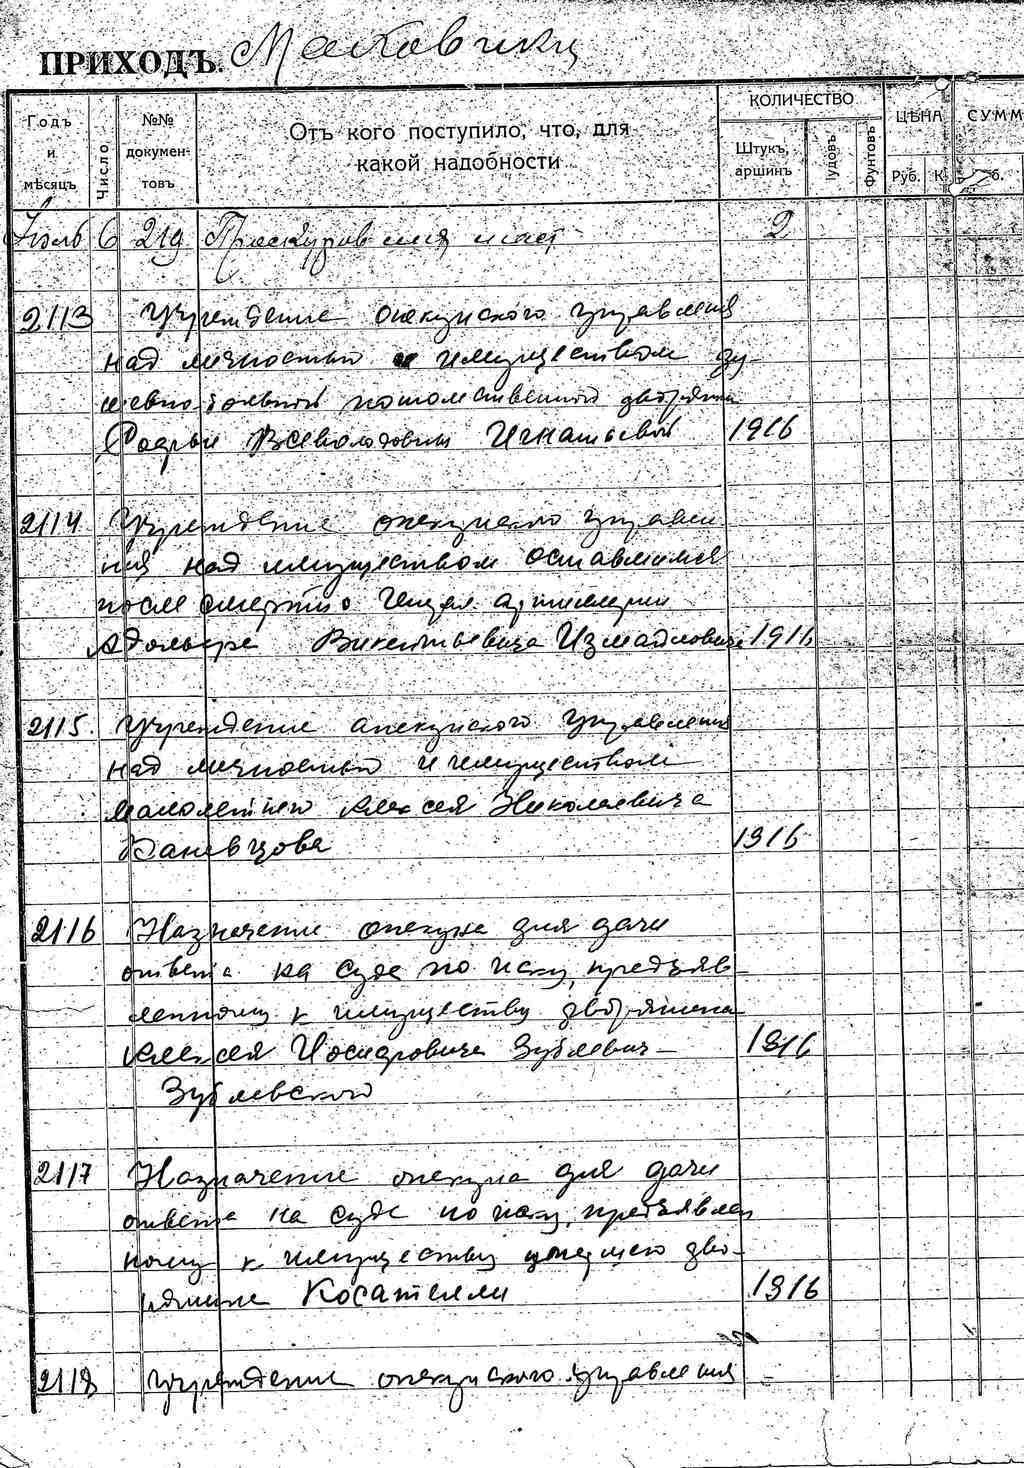 ПРИХОДЪ. Маковики
КОЛИЧЕСТВО ЦѢНА СУММ
Годъ и мѣсяцъ Число №№ докумен-товъ Отъ кого поступило, что, для какой надобности Штукъ, аршинъ Пудовъ Фунтовъ Руб. К. б.
6 219 2
2113 Учреждение опекунского управления
над личностью и имуществом ду-
шевно-больной потомственной дворянки
Софьи Всеволодовны Игнатьевой 1916
2114 Учреждение опекунского управле-
ния над имуществом оставшимся
после смерти генерал артиллерии
Адольфа Викентьевича Измайловича 1916
2115. Учреждение опекунского управления
над личностью и имуществом
малолетнего Алексея Николаевича
Каневцова 1916
2116 Назначение опекуна для дачи
ответа на суде по иску, предъяв-
ленному к имуществу дворянина
Алексея Иосифовича Зублевич-
Зублевского 1916
2117 Назначение опекуна для дачи
ответа на суде по иску, предъявлен
ному к имуществу умершего дво-
рянина Косателли 1916
2118 Учреждение опекунского управления